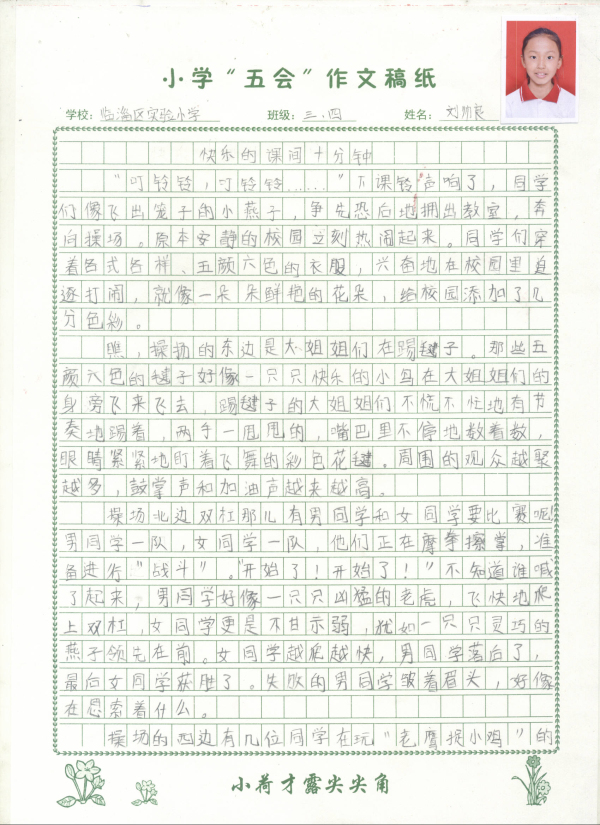 小学“五会”作文稿纸
学校：临淄区实验小学 班级：三、四 姓名：刘
快乐的课间十分钟
“叮铃铃，叮铃铃……”下课铃声响了，同学
们像飞出笼子的小燕子，争先恐后地拥出教室，奔
向操场。原本安静的校园立刻热闹起来。同学们穿
着各式各样、五颜六色的衣服，兴奋地在校园里追
逐打闹，就像一朵朵鲜艳的花朵，给校园添加了几
分色彩。
瞧，操场的东边是大姐姐们在踢毽子。那些五
颜六色的毽子好像一只只快乐的小鸟在大姐姐们的
身旁飞来飞去，踢毽子的大姐姐们不慌不忙地有节
奏地踢着，两手一甩甩的，嘴巴里不停地数着数，
眼睛紧紧地盯着飞舞的彩色花毽。周围的观众越聚
越多，鼓掌声和加油声越来越高。
操场北边双杠那儿有男同学和女同学要比赛呢！
男同学一队，女同学一队，他们正在摩拳擦掌，准
备进行“战斗”。“开始了！开始了！”不知道谁喊
了起来，男同学好像一只只凶猛的老虎，飞快地爬
上双杠，女同学更是不甘示弱，犹如一只只灵巧的
燕子领先在前。女同学越爬越快，男同学落后了，
最后女同学获胜了。失败的男同学皱着眉头，好像
在思索着什么。
操场的西边有几位同学在玩“老鹰捉小鸡”的
小荷才露尖尖角